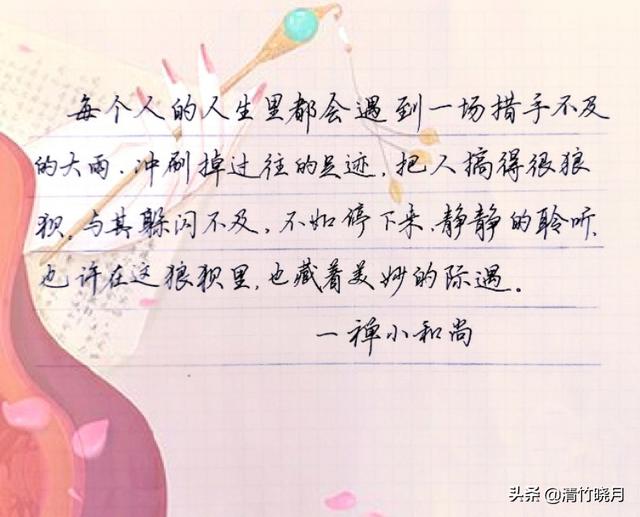 每个人的人生里都会遇到一场措手不及
的大雨.冲刷掉过往的足迹,把人搞得很狼
狈,与其躲闪不及,不如停下来,静静的聆听,
也许在这狼狈里,也藏着美妙的际遇。
一禅小和尚
头条@清竹晓月